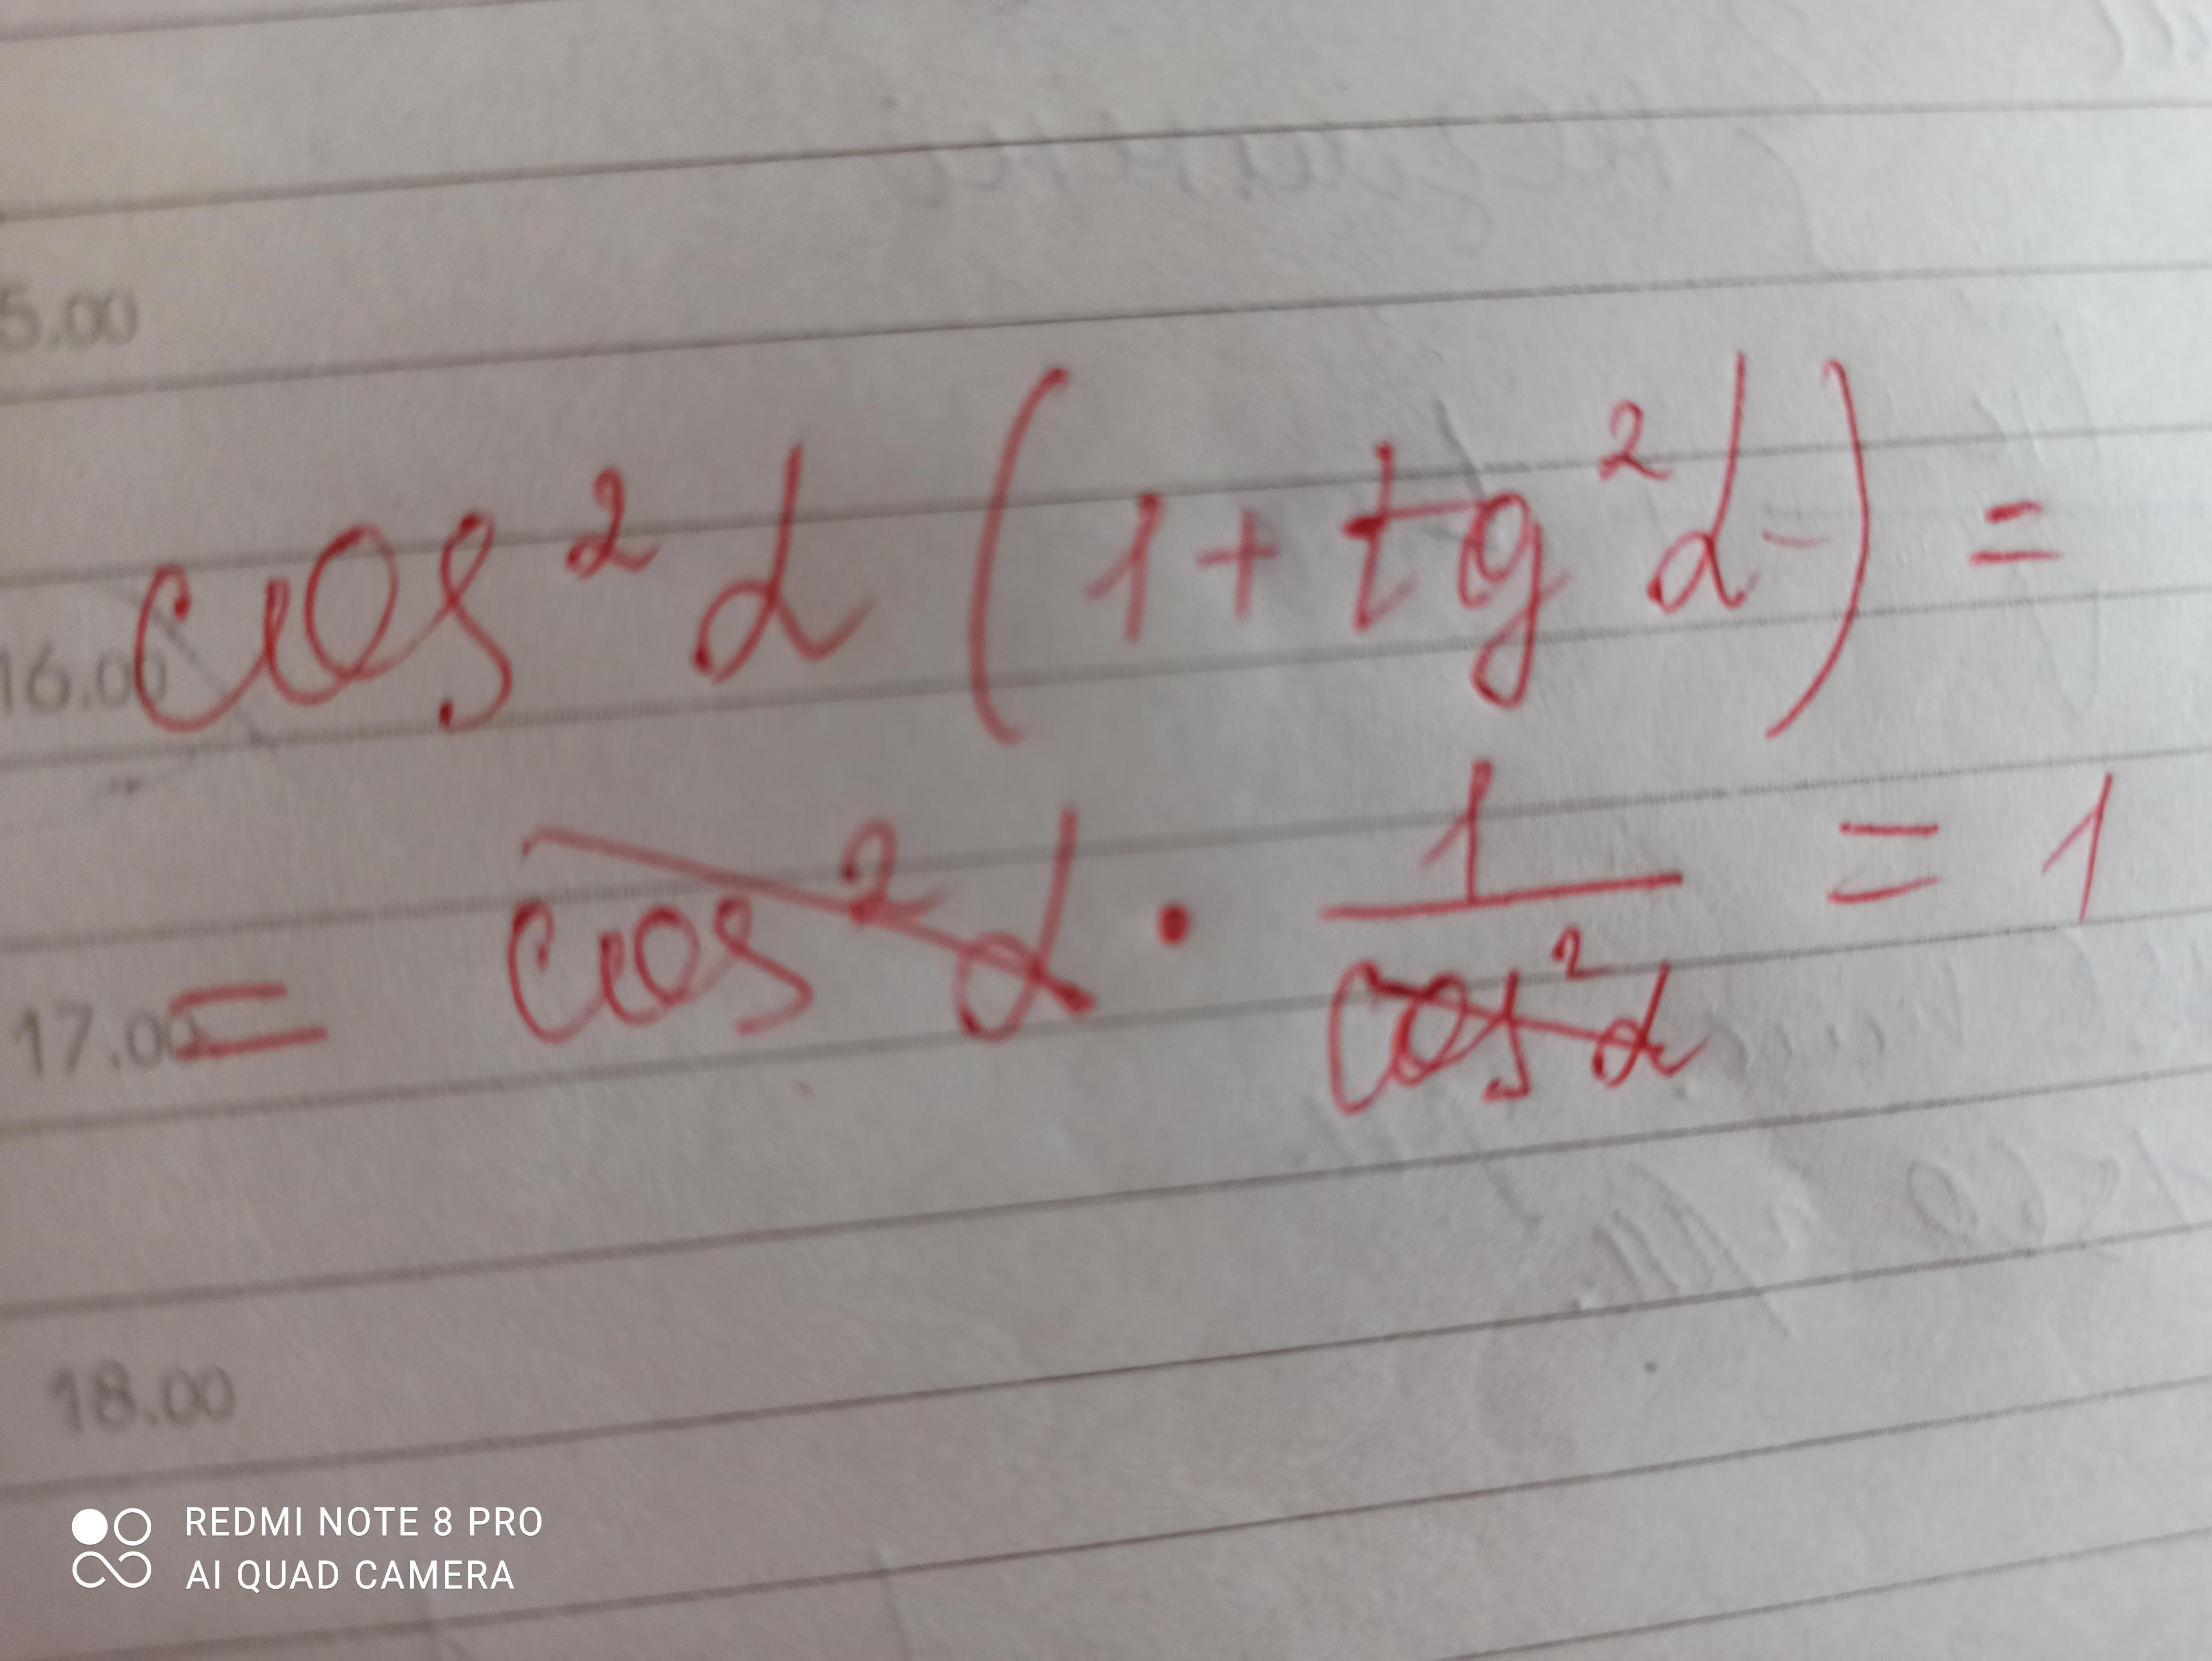 5.00
cos²α (1 + tg²α) =
16.00
= cos²α · 1/cos²α = 1
17.00
18.00
REDMI NOTE 8 PRO
AI QUAD CAMERA